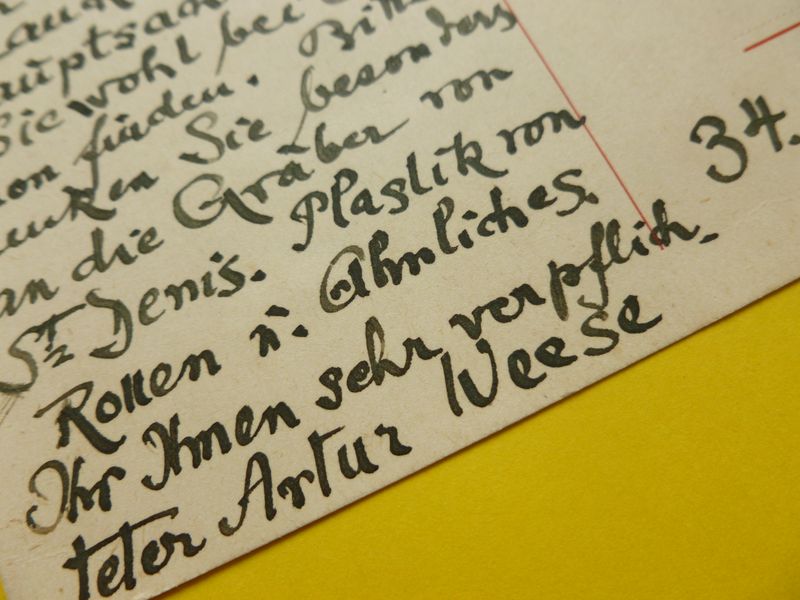 auptsa
Sie wohl bei
on finden. Bitt
enken Sie besonders
an die Gräber von
St. Denis. Plastik von
Rouen u. Ähnliches.
Ihr Ihnen sehr verpflich-
teter Artur Weese
34.